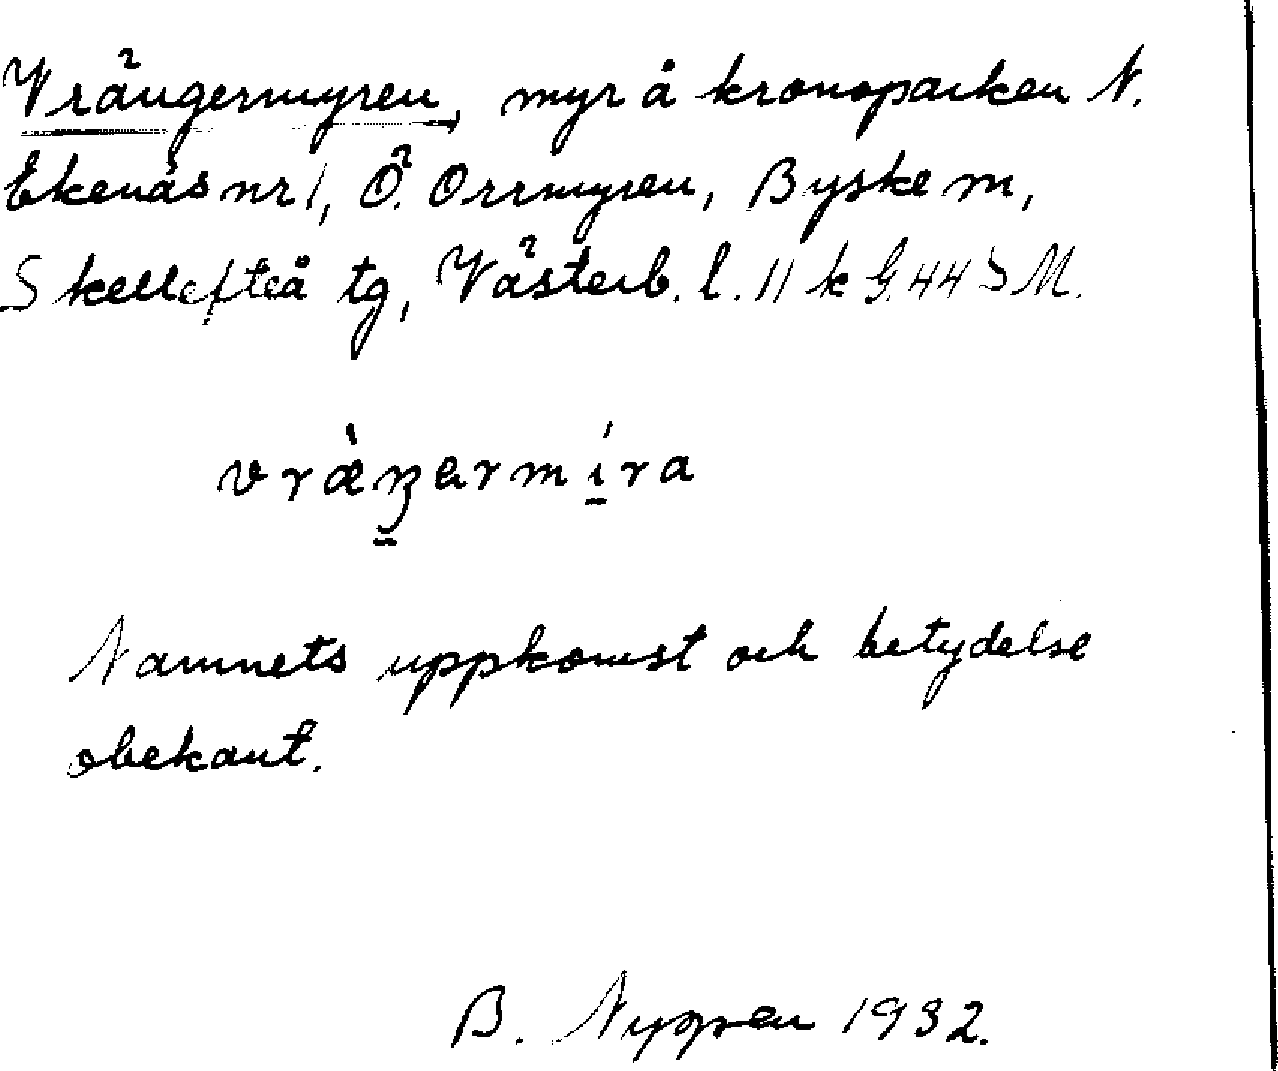 Vrängermyren, myr å kronoparken N.
Ekenäs nr 1, Ö. Orrmyren, Byske m,
Skellefteå tg, Västerb. l. 11 k G. 44 S M.
vræ̀ŋermíra
Namnets uppkomst och betydelse
obekant.
B. Nygren 1932.